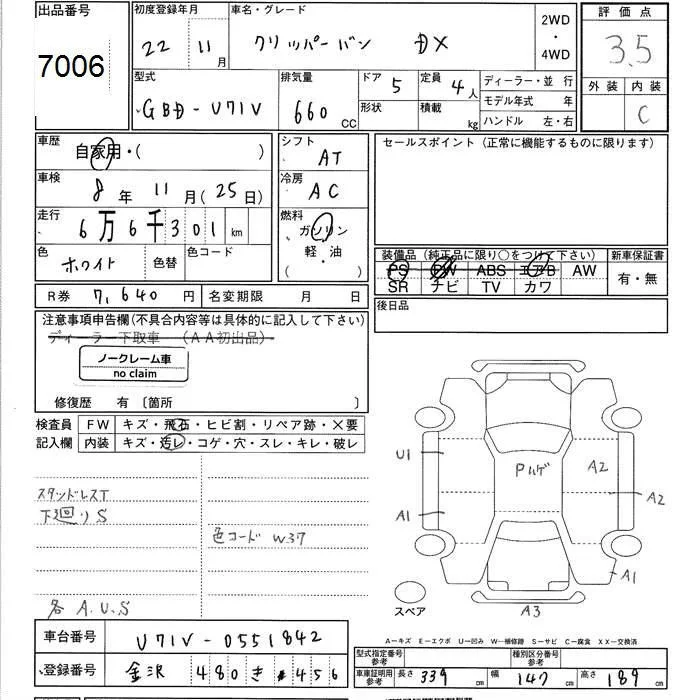 出品番号
7006
初度登録年月
22 11月
車名・グレード
クリッパーバン DX
2WD
・
4WD
評価点
3.5
外装 内装
C
型式
GBD-U71V
排気量
660 CC
ドア 5
形状
定員 4人
積載 kg
ディーラー・並 行
モデル年式 年
ハンドル 左・右
車歴
自家用・( )
シフト
AT
セールスポイント (正常に機能するものに限ります)
車検
8年 11月(25日)
冷房
AC
走行
6万6千301km
燃料
ガソリン
軽・油
( )
色
ホワイト
色替
色コード
装備品 (純正品に限り○をつけて下さい)
PS PW ABS エアB AW
SR ナビ TV カワ
新車保証書
有・無
R券 7,640円
名変期限 月 日
後日品
注意事項申告欄(不具合内容等は具体的に記入して下さい)
ディーラー下取車 (AA初出品)
ノークレーム車
no claim
修復歴 有〔箇所 〕
検査員
記入欄
FW キズ・飛石・ヒビ割・リペア跡・×要
内装 キズ・汚レ・コゲ・穴・スレ・キレ・破レ
スタッドレスT
下廻りS
色コード W37
各 A.U.S
U1
Pハゲ
A2
A2
A1
A1
A3
スペア
A-キズ E-エクボ U-凹み W-補修跡 S-サビ C-腐食 XX-交換済
車台番号
U71V-0551842
登録番号
金沢 480 き 456
型式指定番号
参考
種別区分番号
参考
車庫証明用
参考
長さ 339cm
幅 147cm
高さ 189cm